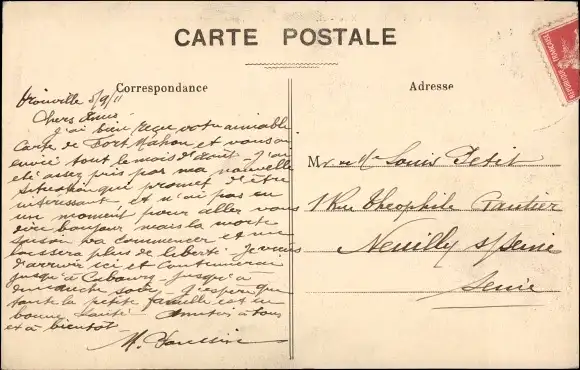 CARTE POSTALE
Correspondance
Adresse
Trouville 5/9/11
Chers Amis,
J'ai bien reçu votre aimable
Carte de Fort Mahon et vous ai
envié tout le mois d'Août. J'ai
été assez pris par ma nouvelle
situation qui promet d'être
intéressant et n'ai pas eu
un moment pour aller vous
dire bonjour mais la morte
saison va commencer et me
laissera plus de liberté. Je viens
d'arriver ici et continuerai
jusqu'à Cabourg jusqu'à
dimanche soir. J'espère que
toute la petite famille est en
bonne santé. Amitiés à tous
et à bientôt
M.
Mr et Me Louis Petit
1 Rue Théophile Gautier
Neuilly s/Seine
Seine
REPUBLIQUE FRANÇAISE